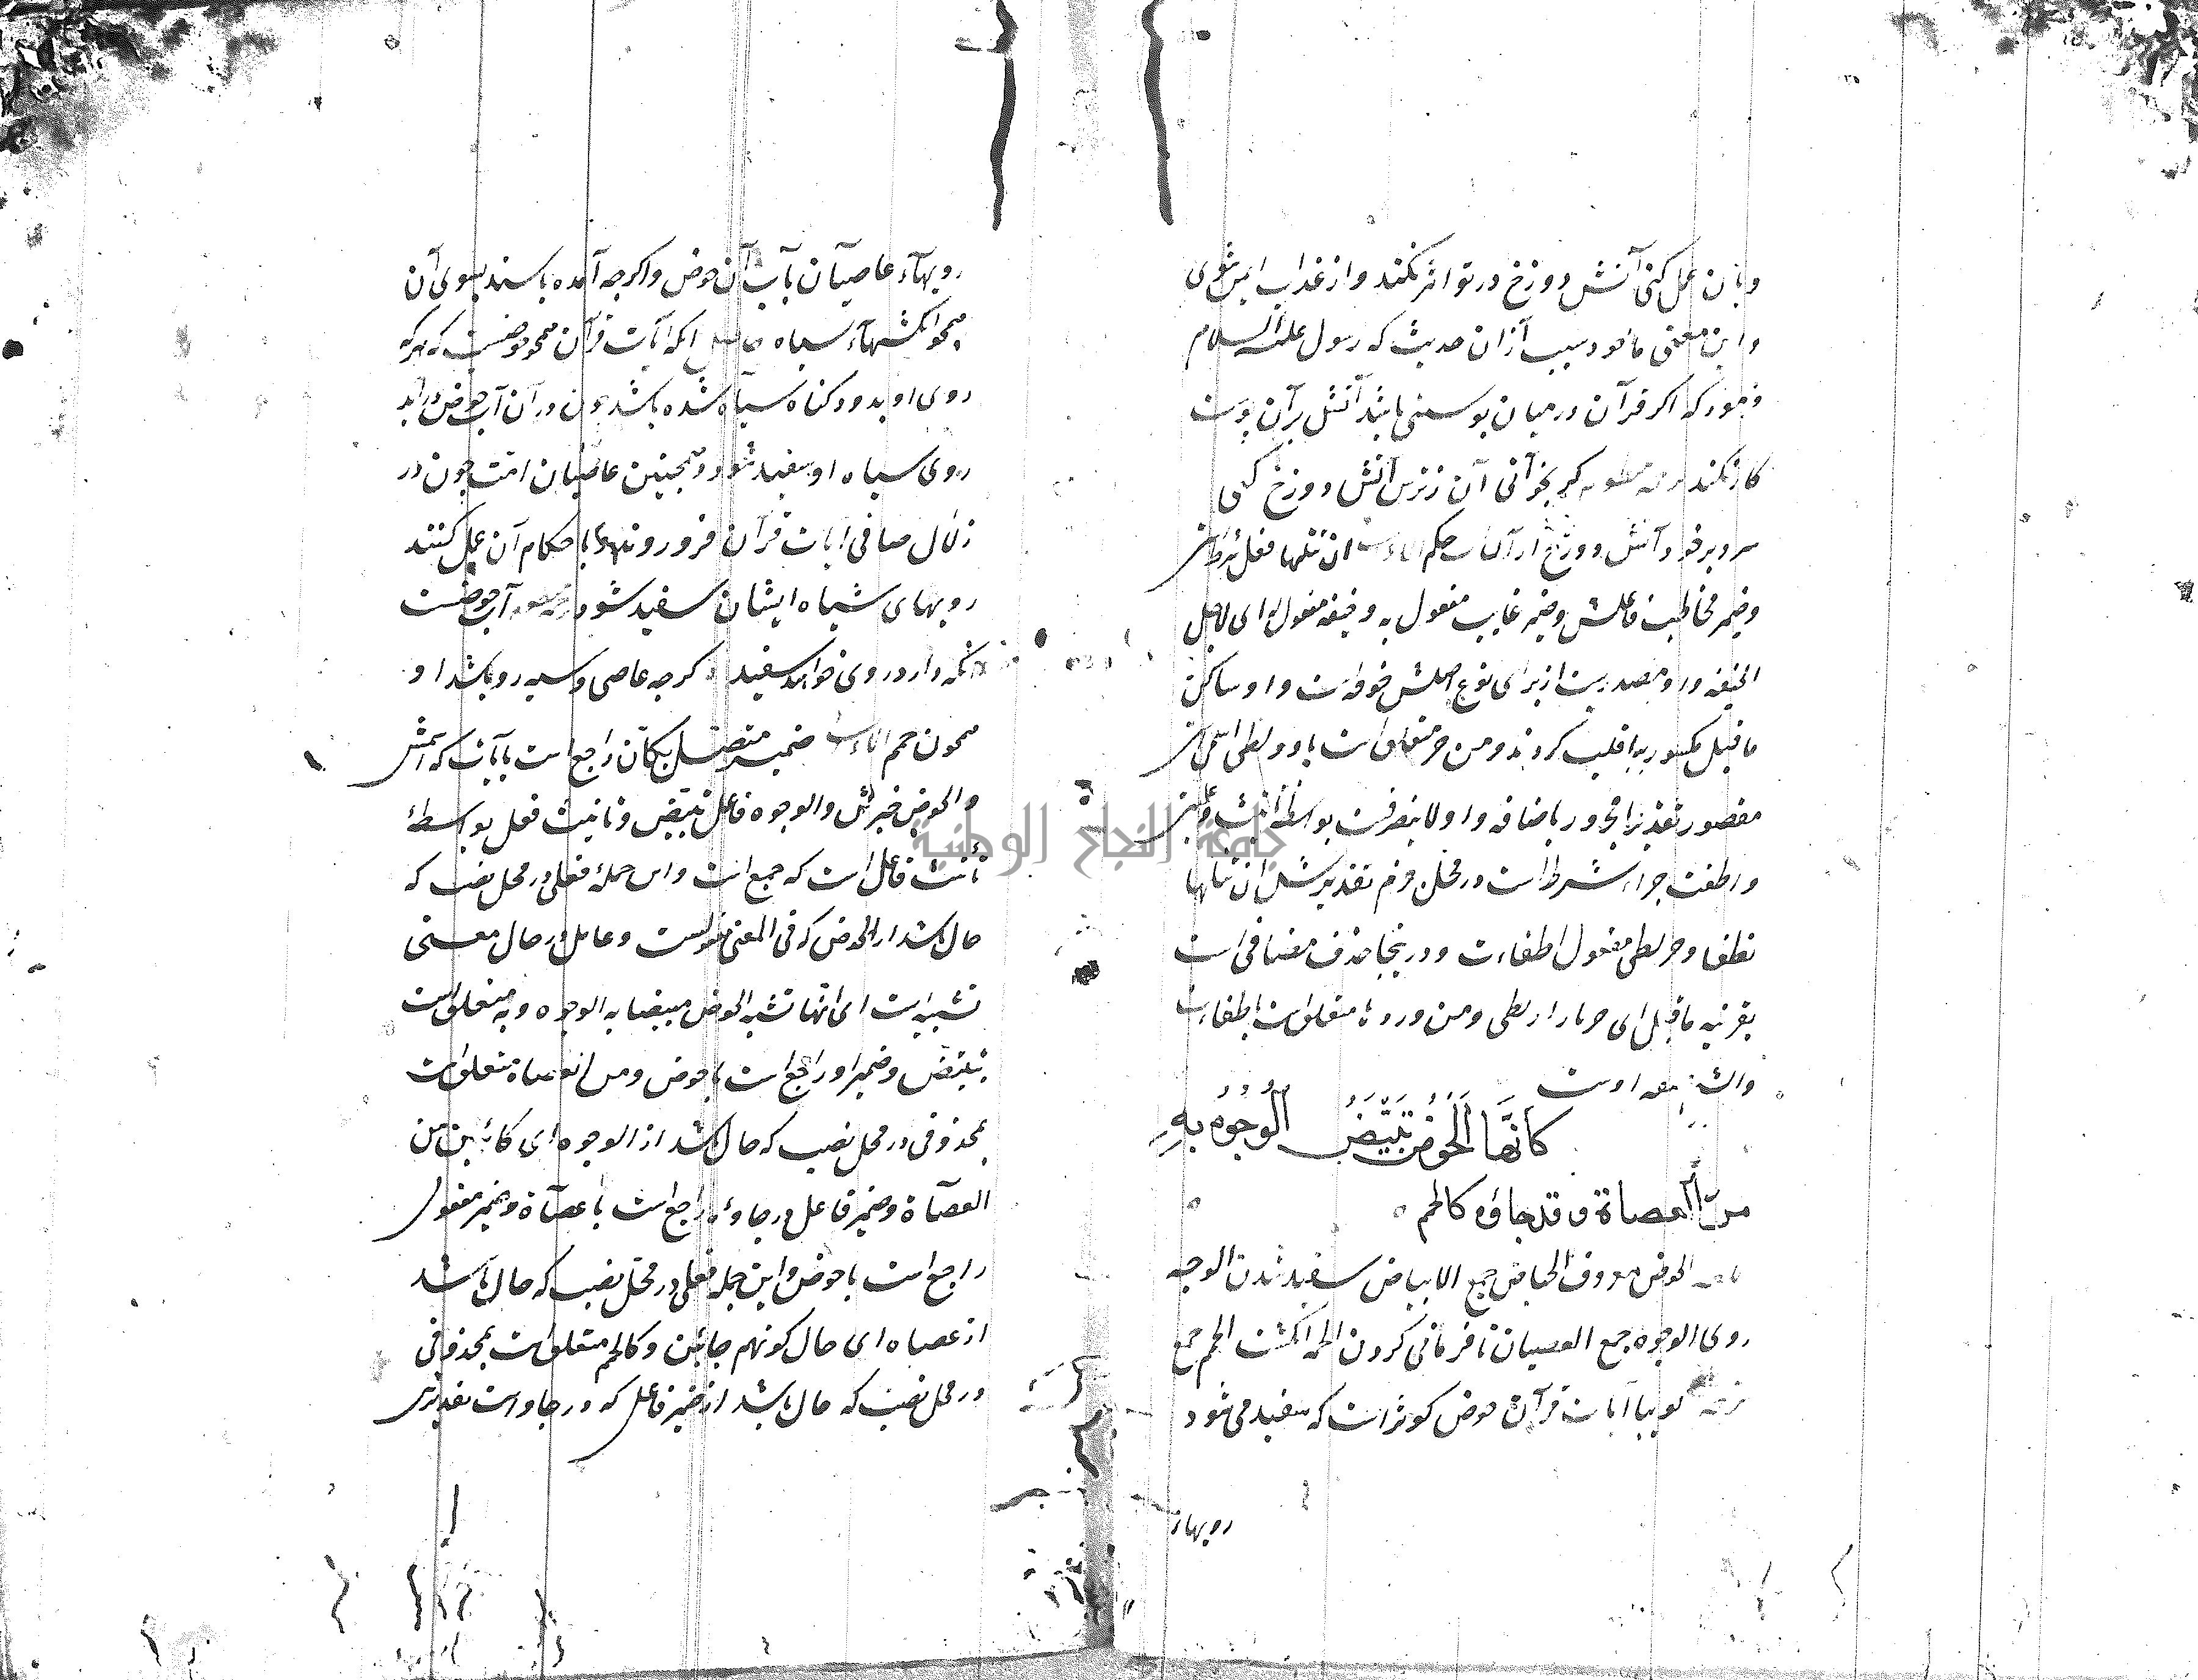 وبان عمل کنی آتش دوزخ در تو اثر نکند و از عذاب ایمن شوی
و این معنی ماخود سبب ازان حدیث که رسول علیه السلام
فرمود که اکر قرآن درمیان پوستی باشد آتش بر آن پوست
کار نکند کر بخوانی آن ز ترس آتش دوزخ
سرد بر خود آتش دوزخ از آن ان تتلها فعل شرط است
وضمیر مخاطب فاعلش وضمیر غایب مفعول به وخیفة مفعول له ای لاجل
الخیفه واو مصدریست از برای نوع اصلش خوفة است واو ساکن
ماقبل مکسور بیا قلب کردند ومن حر متعلق است باو ولظی اسمی است
مقصور تقدیرا مجرور باضافه واو لاینصرفست بواسطه تانیث وعلمیت
واطفئت جزاء شرط است در محل جزم تقدیرش ان تتلها
تطفا وحر لظی مفعول اطفاءت ودرینجا حذف مضافی است
بقرنیه ماقبل ای حر نار لظی ومن وردها متعلق است باطفاءت
کَأَنَّها الحَوضُ تَبْیَضُّ الوُجُوهُ بِهِ
مِنَ العصاة وقد جاؤه کالحمم
الحوض معروف الحیاض جمع الابیاض سفید شدن الوجه
روی الوجوه جمع العصیان نافرمانی کردن الحمة انکشت الحمم جمع
کوییا آیات قرآن حوض کوثر است که سفید می شود
رویهاء
رویهاء عاصیان بآب آن حوض واکرچه آمده باشند بسوی آن
همچو انکشتهاء سیاه حاصل انکه آیات قرآن همچو حوضیست که هرکه
روی او بدود کناه سیاه شده باشد چون در آن آب حوض درآید
روی سیاه او سفید شود وهمچنین عاصیان امت چون در
زلال صافی آیات قرآن فرو روند وباحکام آن عمل کنند
رویهای سیاه ایشان سفید شود آب حوضست
انکه دارد روی خواهد سفید کرچه عاصی وسیه رو باشد او
همچون حمم ضمیر متصل بکأن راجع است بآیات که اسمش است
والحوض خبرش والوجوه فاعل تبیض وتانیث فعل بواسطهٔ
تأنیث فاعل است که جمع است واین جملهٔ فعلی در محل نصب که
حال باشد از الحوض که فی المعنی مفعولست وعامل در حال معنی
تشبیه است ای انها تشبه الحوض مبیضا به الوجوه وبه متعلق است
بتبیض وضمیر او راجع است با حوض ومن العصاة متعلق است
بمحذوفی در محل نصب که حال باشد از الوجوه ای کائین من
العصاة وضمیر فاعل در جاؤه راجع است با عصاة وضمیر مفعول
راجع است با حوض واین جمله فعلی در محل نصب که حال باشد
از عصاه ای حال کونهم جائین وکالحمم متعلق است بمحذوفی
در محل نصب که حال باشد از ضمیر فاعل که در جاؤ است تقدیرش
جامعة النجاح الوطنية